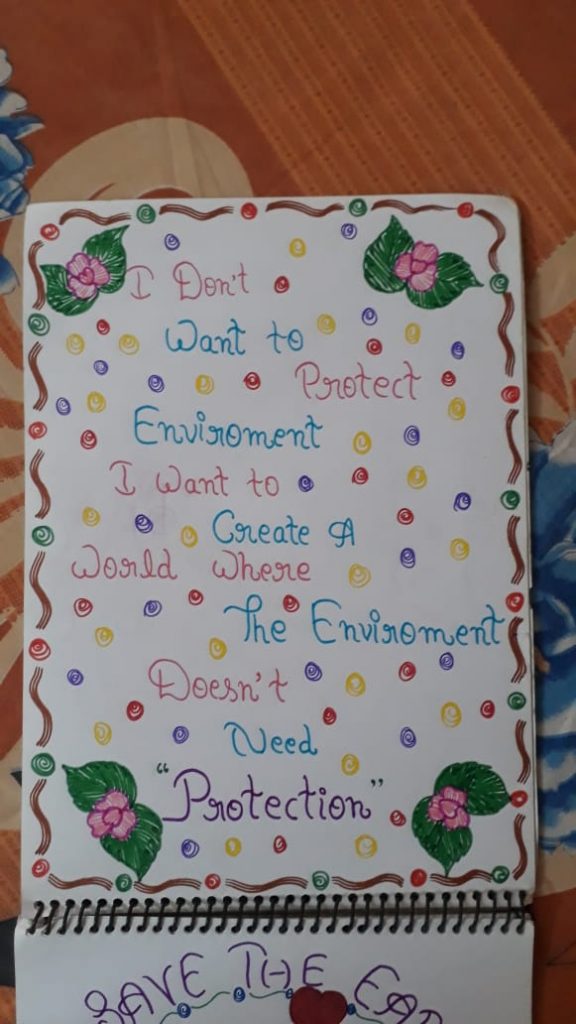 I Don't
Want to
Protect
Enviroment
I Want to
Create A
World Where
The Enviroment
Doesn't
Need
"Protection"
SAVE THE